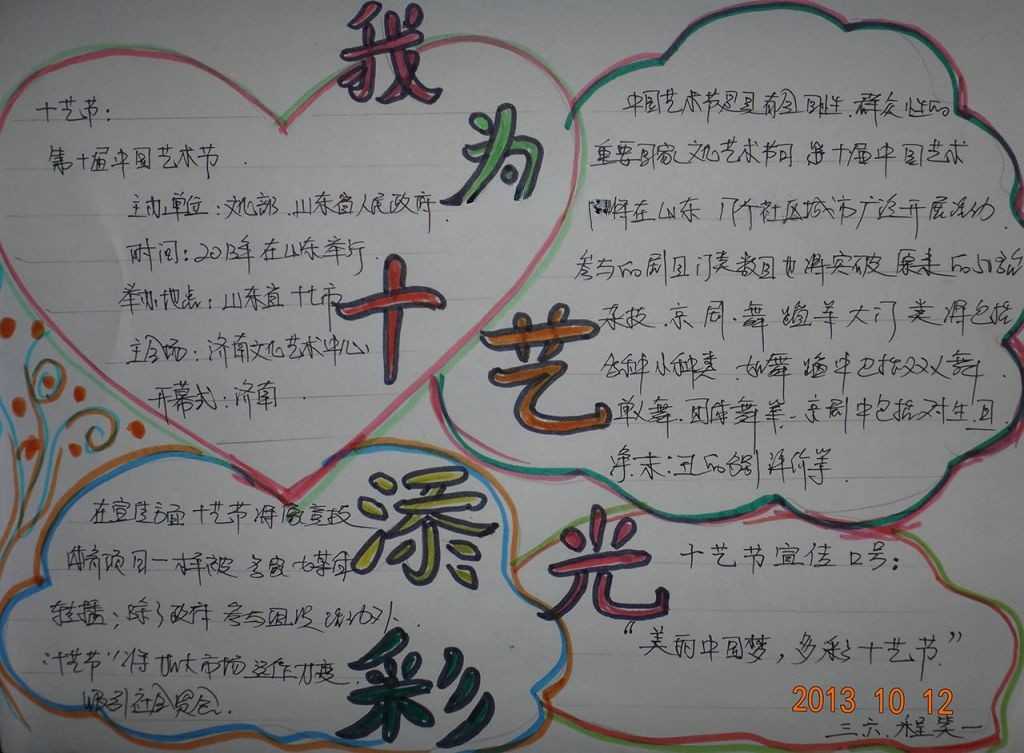 我为十艺添光彩
十艺节：
第十届中国艺术节
主办单位：文化部、山东省人民政府
时间：2013年在山东举行
举办地点：山东省十七市
主会场：济南文化艺术中心
开幕式：济南
中国艺术节是具有全国性、群众性的
重要国家文化艺术节日 第十届中国艺术
将在山东 社区城市广泛开展活动
参与的剧目门类数目也将突破原来的
杂技、京剧、舞蹈等大门类将包括
各种小种类、如舞蹈中包括双人舞
单人舞、团体舞等、京剧中包括对生旦
净、末、丑的 评价等
在宣传方面十艺节将像竞技
体育项目一样被
转播；除了政府参与组织活动外、
十艺节”将加大市场运作力度
吸引社会资金．
十艺节宣传口号：
“美的中国梦，多彩十艺节”
2013 10 12
三.六.程笑一